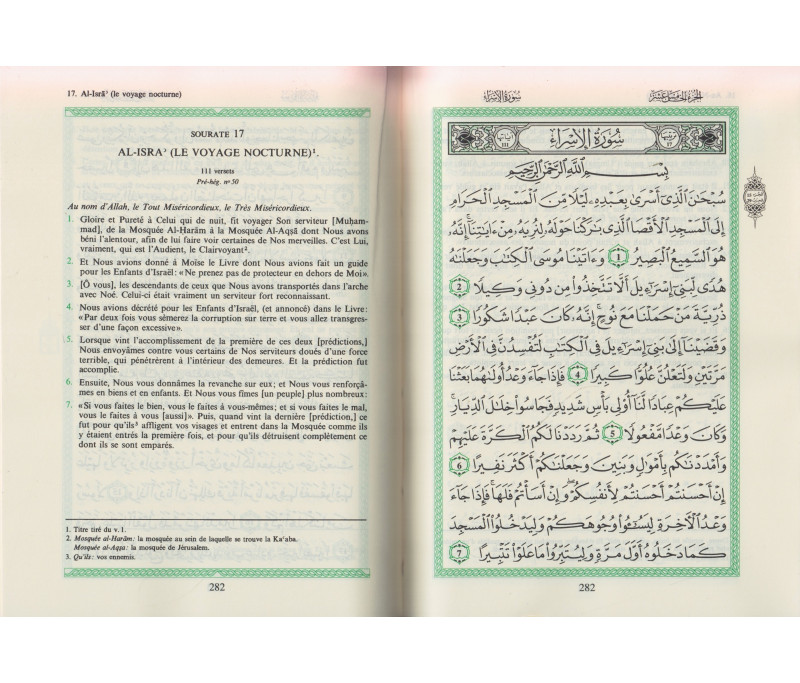 17. Al-Isrā' (le voyage nocturne)
SOURATE 17
AL-ISRA' (LE VOYAGE NOCTURNE)¹.
111 versets
Pré-hég. n° 50
Au nom d'Allah, le Tout Miséricordieux, le Très Miséricordieux.
1. Gloire et Pureté à Celui qui de nuit, fit voyager Son serviteur [Muḥam-
mad], de la Mosquée Al-Ḥarām à la Mosquée Al-Aqṣā dont Nous avons
béni l'alentour, afin de lui faire voir certaines de Nos merveilles. C'est Lui,
vraiment, qui est l'Audient, le Clairvoyant².
2. Et Nous avions donné à Moïse le Livre dont Nous avions fait un guide
pour les Enfants d'Israël: «Ne prenez pas de protecteur en dehors de Moi».
3. [Ô vous], les descendants de ceux que Nous avons transportés dans l'arche
avec Noé. Celui-ci était vraiment un serviteur fort reconnaissant.
4. Nous avions décrété pour les Enfants d'Israël, (et annoncé) dans le Livre:
«Par deux fois vous sèmerez la corruption sur terre et vous allez transgres-
ser d'une façon excessive».
5. Lorsque vint l'accomplissement de la première de ces deux [prédictions,]
Nous envoyâmes contre vous certains de Nos serviteurs doués d'une force
terrible, qui pénétrèrent à l'intérieur des demeures. Et la prédiction fut
accomplie.
6. Ensuite, Nous vous donnâmes la revanche sur eux; et Nous vous renforçâ-
mes en biens et en enfants. Et Nous vous fîmes [un peuple] plus nombreux:
7. «Si vous faites le bien, vous le faites à vous-mêmes; et si vous faites le mal,
vous le faites à vous [aussi]». Puis, quand vint la dernière [prédiction,] ce
fut pour qu'ils³ affligent vos visages et entrent dans la Mosquée comme ils
y étaient entrés la première fois, et pour qu'ils détruisent complètement ce
dont ils se sont emparés.
1. Titre tiré du v.1.
2. Mosquée al-Ḥarām: la mosquée au sein de laquelle se trouve la Ka'aba.
Mosquée al-Aqṣa: la mosquée de Jérusalem.
3. Qu'ils: vos ennemis.
282
سورة الإسراء الجزء الخامس عشر
سُورَةُ الإِسْرَاءِ
بِسْمِ اللَّهِ الرَّحْمَٰنِ الرَّحِيمِ
سُبْحَٰنَ الَّذِي أَسْرَىٰ بِعَبْدِهِ لَيْلًا مِّنَ الْمَسْجِدِ الْحَرَامِ
إِلَى الْمَسْجِدِ الْأَقْصَا الَّذِي بَٰرَكْنَا حَوْلَهُ لِنُرِيَهُ مِنْ ءَايَٰتِنَا إِنَّهُ
هُوَ السَّمِيعُ الْبَصِيرُ 1 وَءَاتَيْنَا مُوسَى الْكِتَٰبَ وَجَعَلْنَٰهُ
هُدًى لِّبَنِي إِسْرَٰءِيلَ أَلَّا تَتَّخِذُوا مِن دُونِي وَكِيلًا 2
ذُرِّيَّةَ مَنْ حَمَلْنَا مَعَ نُوحٍ إِنَّهُ كَانَ عَبْدًا شَكُورًا 3
وَقَضَيْنَا إِلَىٰ بَنِي إِسْرَٰءِيلَ فِي الْكِتَٰبِ لَتُفْسِدُنَّ فِي الْأَرْضِ
مَرَّتَيْنِ وَلَتَعْلُنَّ عُلُوًّا كَبِيرًا 4 فَإِذَا جَاءَ وَعْدُ أُولَىٰهُمَا بَعَثْنَا
عَلَيْكُمْ عِبَادًا لَّنَا أُولِي بَأْسٍ شَدِيدٍ فَجَاسُوا خِلَٰلَ الدِّيَارِ
وَكَانَ وَعْدًا مَّفْعُولًا 5 ثُمَّ رَدَدْنَا لَكُمُ الْكَرَّةَ عَلَيْهِمْ
وَأَمْدَدْنَٰكُم بِأَمْوَٰلٍ وَبَنِينَ وَجَعَلْنَٰكُمْ أَكْثَرَ نَفِيرًا 6
إِنْ أَحْسَنتُمْ أَحْسَنتُمْ لِأَنفُسِكُمْ وَإِنْ أَسَأْتُمْ فَلَهَا فَإِذَا جَاءَ
وَعْدُ الْءَاخِرَةِ لِيَسُءُوا وُجُوهَكُمْ وَلِيَدْخُلُوا الْمَسْجِدَ
كَمَا دَخَلُوهُ أَوَّلَ مَرَّةٍ وَلِيُتَبِّرُوا مَا عَلَوْا تَتْبِيرًا 7
282